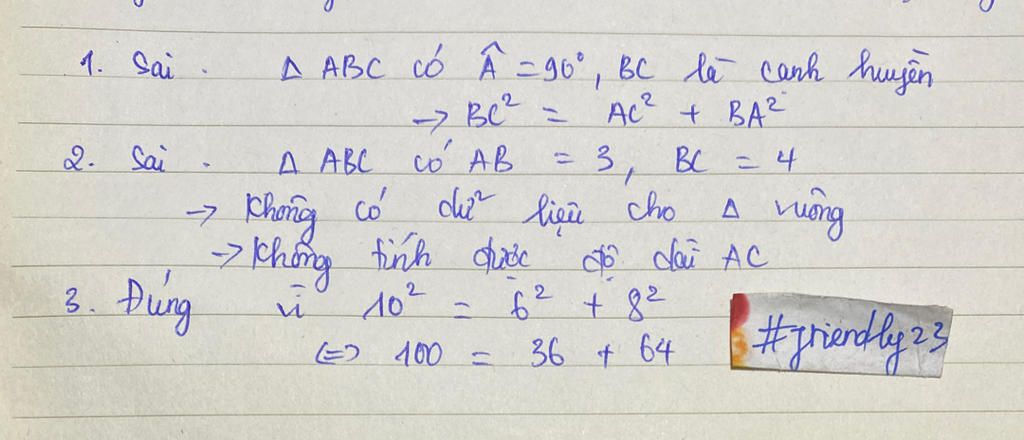 1. Sai. Δ ABC có Â = 90°, BC là cạnh huyền
→ BC² = AC² + BA²
2. Sai. Δ ABC có AB = 3, BC = 4
→ Không có dữ liệu cho Δ vuông
→ Không tính được độ dài AC
3. Đúng vì 10² = 6² + 8²
⇔ 100 = 36 + 64
#friendly23